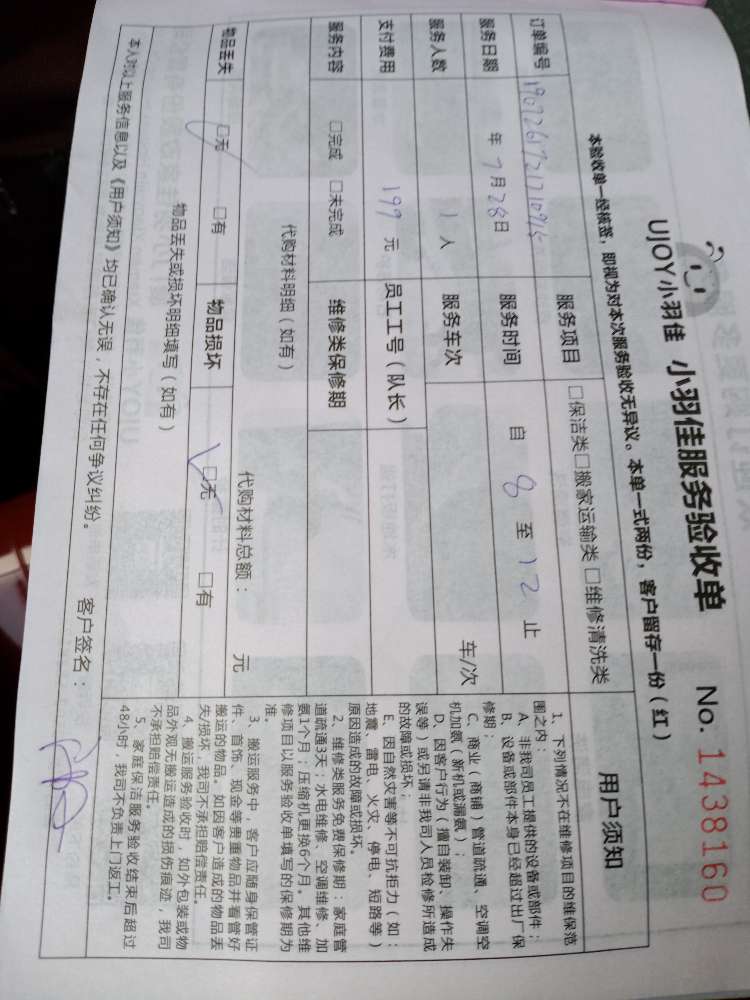 UJOY小羽佳 小羽佳服务验收单 No. 1438160
本验收单一经核签，即视为对本次服务验收无异议。本单一式两份，客户留存一份（红）
订单编号 服务项目 □保洁类□搬家运输类□维修清洗类
服务日期 年 7月28日 服务时间 自 8 至 12 止
服务人数 1 人 服务车次 车/次
支付费用 199 元 员工工号（队长）
服务内容 □完成 □未完成 维修类保修期
代购材料明细（如有） 代购材料总额： 元
物品丢失 □无 □有 物品损坏 □无 □有
物品丢失或损坏明细填写（如有）
本人对以上服务信息以及《用户须知》均已确认无误，不存在任何争议纠纷。 客户签名：
用户须知
1、下列情况不在维修项目的维保范
围之内：
A、非我司员工提供的设备或部件；
B、设备或部件本身已经超过出厂保
修期；
C、商业（商铺）管道疏通、空调空
机加氨（新机或漏氨）；
D、因客户行为（擅自装卸、操作失
误等）或另请非我司人员检修所造成
的故障或损坏；
E、因自然灾害等不可抗拒力（如：
地震、雷电、火灾、停电、短路等）
原因造成的故障或损坏。
2、维修类服务免费保修期：家庭管
道疏通3天；水电维修、空调维修、加
氨1个月；压缩机更换6个月，其他维
修项目以服务验收单填写的保修期为
准。
3、搬运服务中，客户应随身保管证
件、首饰、现金等贵重物品并看管好
搬运的物品。如因客户造成的物品丢
失/损坏，我司不承担赔偿责任。
4、搬运服务验收时，如外包装或物
品外观无搬运造成的损伤痕迹，我司
不承担赔偿责任。
5、家庭保洁服务验收结束后超过
48小时，我司不负责上门返工。